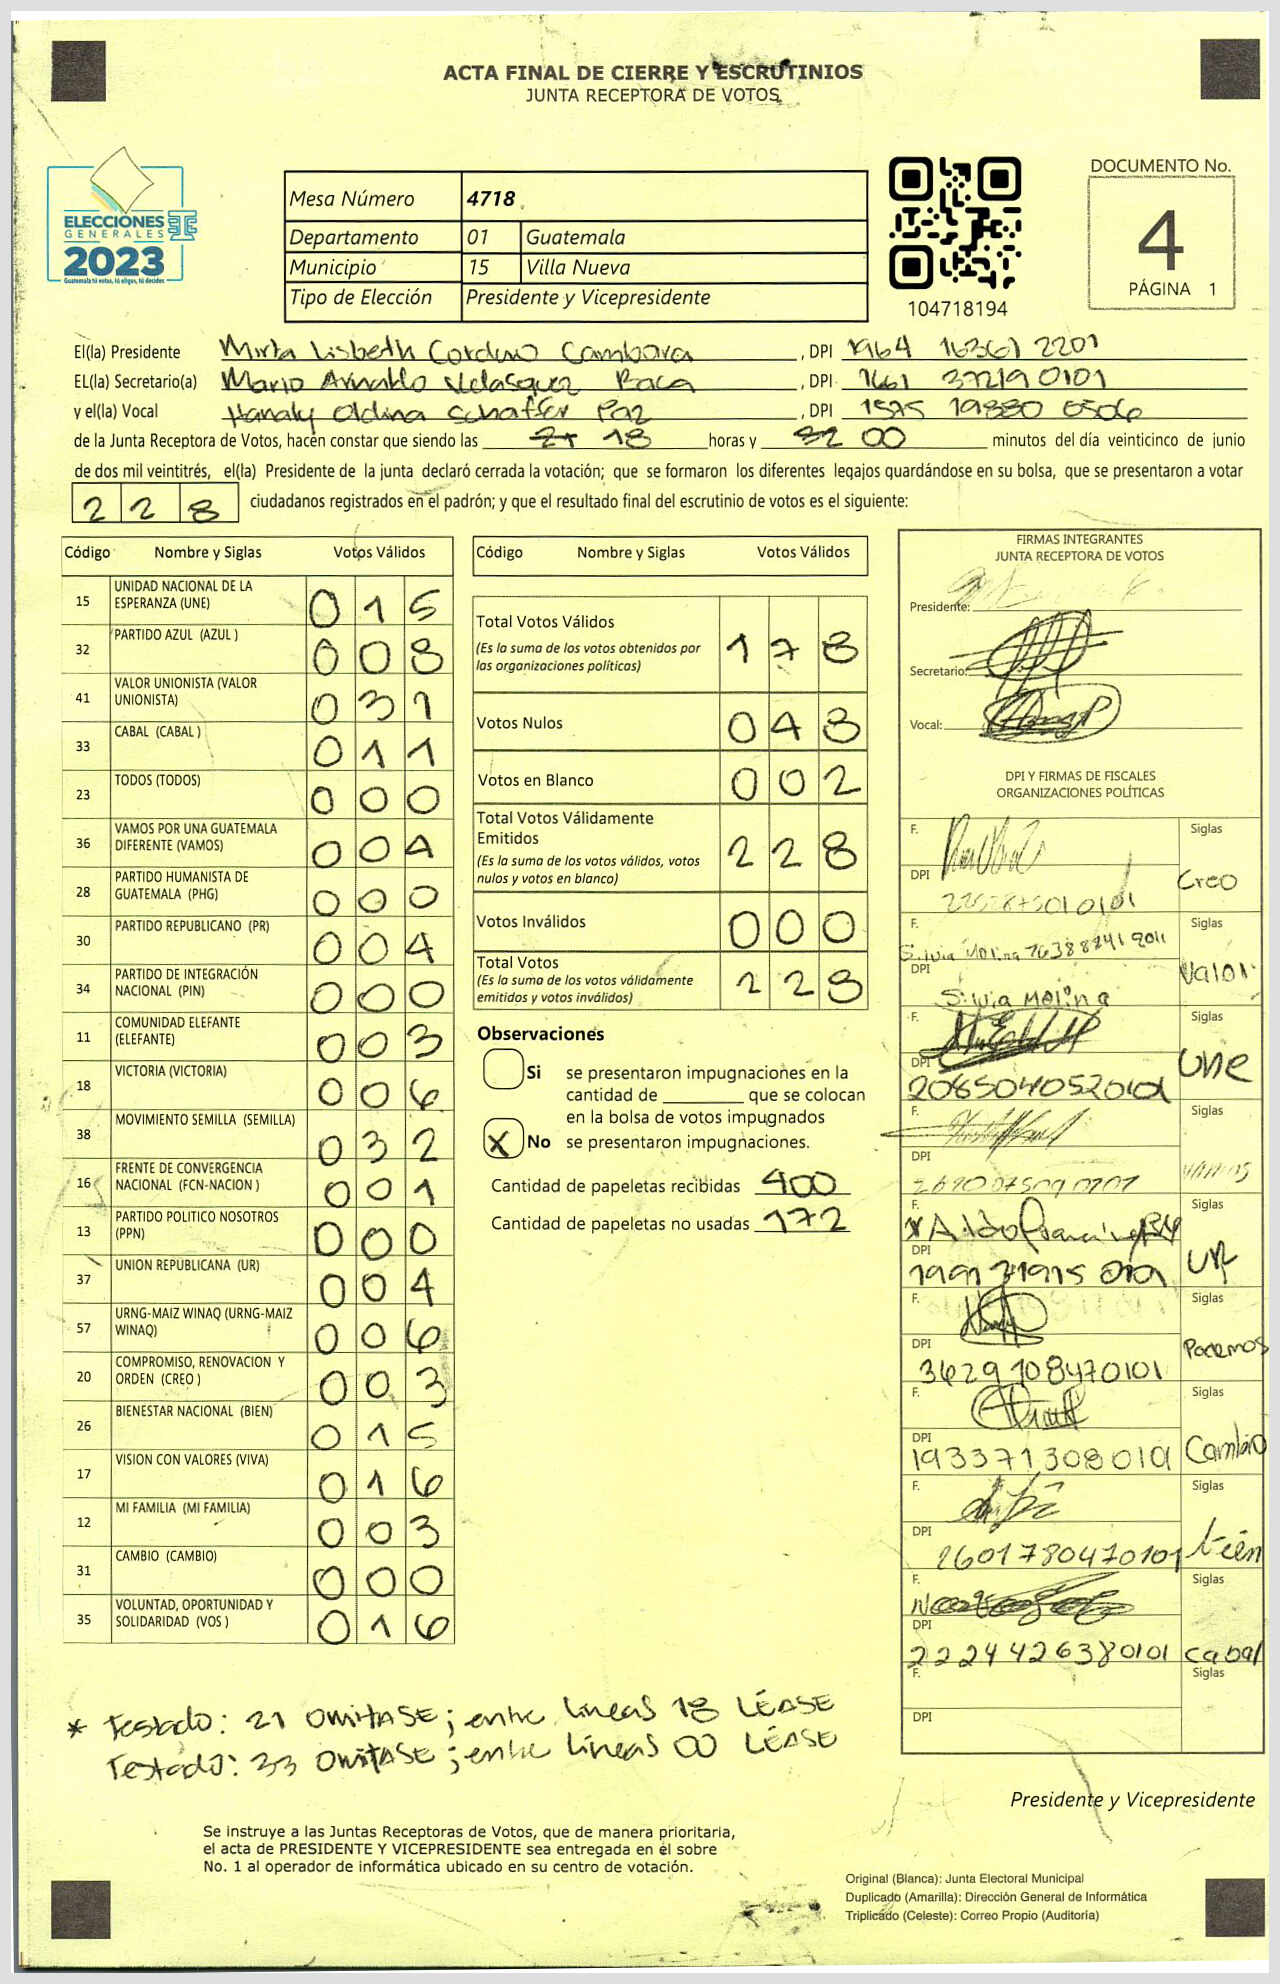 ACTA FINAL DE CIERRE Y ESCRUTINIOS
JUNTA RECEPTORA DE VOTOS
ELECCIONES
GENERALES
2023
Guatemala tú votas, tú eliges, tú decides
Mesa Número 4718
Departamento 01 Guatemala
Municipio 15 Villa Nueva
Tipo de Elección Presidente y Vicepresidente
104718194
DOCUMENTO No.
4
PÁGINA 1
El(la) Presidente Mirta Lisbeth Cordero Cambara , DPI 1964 16361 2201
EL(la) Secretario(a) Mario Arnaldo Velasquez Baca , DPI 1661 37219 0101
y el(la) Vocal Hanaly Oldina Schaffer Paz , DPI 1575 19880 0506
de la Junta Receptora de Votos, hacen constar que siendo las 21 18 horas y 00 minutos del día veinticinco de junio
de dos mil veintitrés, el(la) Presidente de la junta declaró cerrada la votación; que se formaron los diferentes legajos quardándose en su bolsa, que se presentaron a votar
228 ciudadanos registrados en el padrón; y que el resultado final del escrutinio de votos es el siguiente:
Código Nombre y Siglas Votos Válidos
15 UNIDAD NACIONAL DE LA ESPERANZA (UNE) 015
32 PARTIDO AZUL (AZUL ) 008
41 VALOR UNIONISTA (VALOR UNIONISTA) 031
33 CABAL (CABAL ) 011
23 TODOS (TODOS) 000
36 VAMOS POR UNA GUATEMALA DIFERENTE (VAMOS) 004
28 PARTIDO HUMANISTA DE GUATEMALA (PHG) 000
30 PARTIDO REPUBLICANO (PR) 004
34 PARTIDO DE INTEGRACIÓN NACIONAL (PIN) 000
11 COMUNIDAD ELEFANTE (ELEFANTE) 003
18 VICTORIA (VICTORIA) 006
38 MOVIMIENTO SEMILLA (SEMILLA) 032
16 FRENTE DE CONVERGENCIA NACIONAL (FCN-NACION ) 001
13 PARTIDO POLITICO NOSOTROS (PPN) 000
37 UNION REPUBLICANA (UR) 004
57 URNG-MAIZ WINAQ (URNG-MAIZ WINAQ) 006
20 COMPROMISO, RENOVACION Y ORDEN (CREO ) 003
26 BIENESTAR NACIONAL (BIEN) 015
17 VISION CON VALORES (VIVA) 016
12 MI FAMILIA (MI FAMILIA) 003
31 CAMBIO (CAMBIO) 000
35 VOLUNTAD, OPORTUNIDAD Y SOLIDARIDAD (VOS ) 016
Código Nombre y Siglas Votos Válidos
Total Votos Válidos 178
(Es la suma de los votos obtenidos por
las organizaciones políticas)
Votos Nulos 048
Votos en Blanco 002
Total Votos Válidamente
Emitidos 228
(Es la suma de los votos válidos, votos
nulos y votos en blanco)
Votos Inválidos 000
Total Votos 228
(Es la suma de los votos válidamente
emitidos y votos inválidos)
Observaciones
Si se presentaron impugnaciones en la
cantidad de ________ que se colocan
en la bolsa de votos impugnados
X No se presentaron impugnaciones.
Cantidad de papeletas recibidas 400
Cantidad de papeletas no usadas 172
FIRMAS INTEGRANTES
JUNTA RECEPTORA DE VOTOS
Presidente:
Secretario:
Vocal:
DPI Y FIRMAS DE FISCALES
ORGANIZACIONES POLÍTICAS
F. Siglas
DPI Creo
F. Siglas
Silvia Molina
DPI Valor
Silvia Molina
F. Siglas
DPI Une
2085040520101
F. Siglas
DPI Vamos
F. Siglas
DPI UR
F. Siglas
DPI Podemos
3629708470101
F. Siglas
DPI Cambio
1933713080101
F. Siglas
DPI bien
2601780470101
F. Siglas
DPI
2224426380101 Cabal
F. Siglas
DPI
* Testado: 21 OMITASE; entre líneas 18 LÉASE
Testado: 33 OMITASE; entre líneas 00 LÉASE
Presidente y Vicepresidente
Se instruye a las Juntas Receptoras de Votos, que de manera prioritaria,
el acta de PRESIDENTE Y VICEPRESIDENTE sea entregada en el sobre
No. 1 al operador de informática ubicado en su centro de votación.
Original (Blanca): Junta Electoral Municipal
Duplicado (Amarilla): Dirección General de Informática
Triplicado (Celeste): Correo Propio (Auditoría)